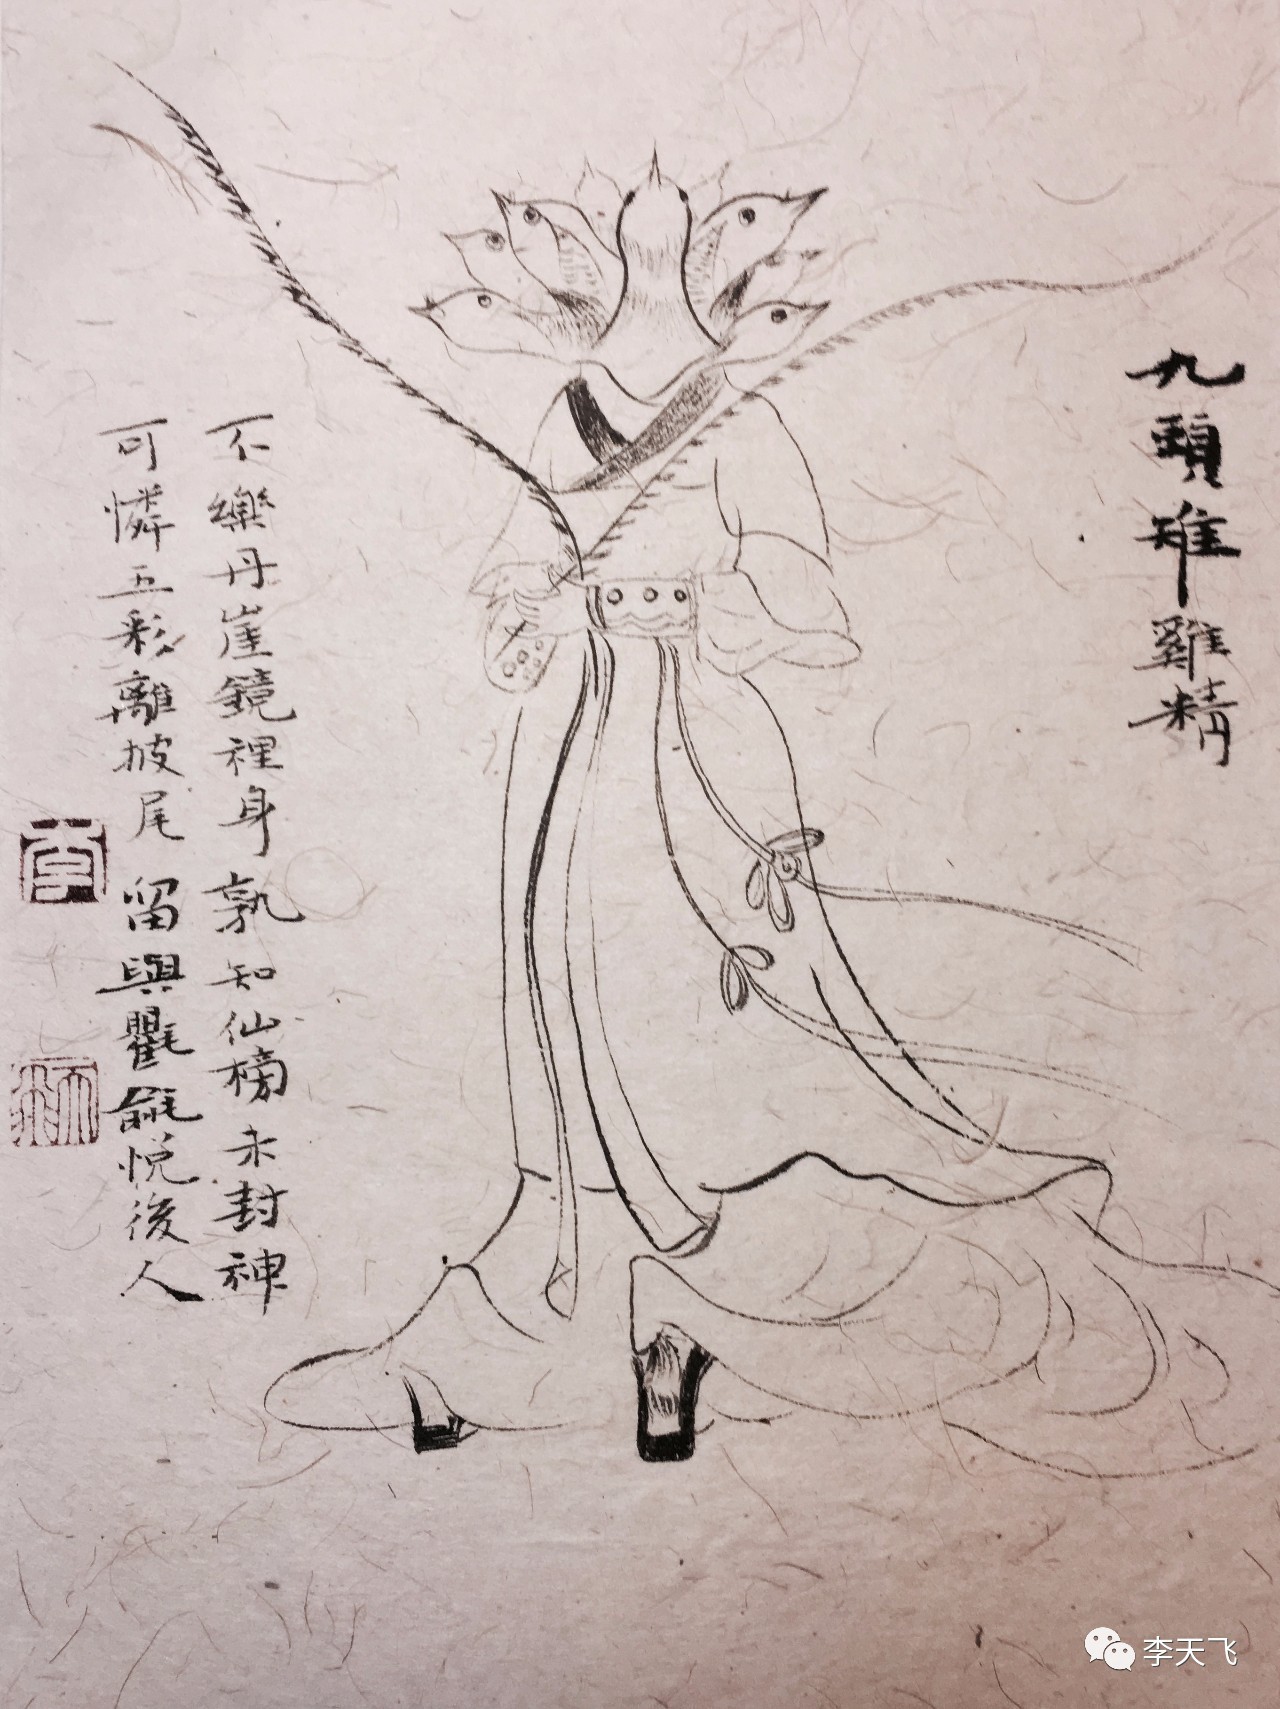 九頭雉雞精
不樂丹崖鏡裡身 孰知仙榜未封神
可憐五彩離披尾 留與氍毹悅後人
李
天飛
李天飞